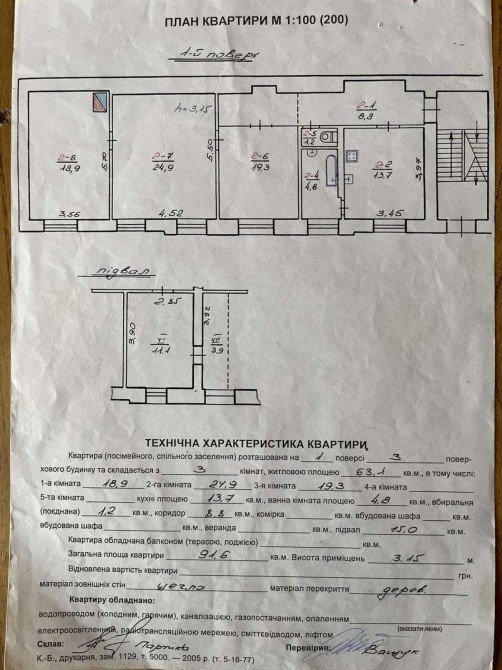 ПЛАН КВАРТИРИ М 1:100 (200)
1-й поверх
2-1
8,8
h=3,15
2-5
1,2
2-8
18,9
5,30
2-7
24,9
5,50
2-6
19,3
2-4
4,8
2-2
13,7
3,97
3,56
4,52
3,45
підвал
2,85
3,90
VI
11,1
3,92
VII
3,9
ТЕХНІЧНА ХАРАКТЕРИСТИКА КВАРТИРИ
Квартира (посімейного, спільного заселення) розташована на 1 поверсі 3 повер-
хового будинку та складається з 3 кімнат, житловою площею 63,1 кв.м., в тому числі:
1-а кімната 18,9 2-га кімната 24,9 3-я кімната 19,3 4-а кімната
5-та кімната кухні площею 13,7 кв.м., ванна кімната площею 4,8 кв.м., вбиральня
(поєднана) 1,2 кв.м., коридор 8.8 кв.м., комірка кв.м. вбудована шафа кв.м.
вбудована шафа кв.м., веранда кв.м., підвал 15,0 кв.м.
Квартира обладнана балконом (терасою, лоджією) кв.м.
Загальна площа квартири 91,6 кв.м. Висота приміщень 3.15 м.
Відновлена вартість квартири грн.
матеріал зовнішніх стін цегла матеріал перекриття дерев.
Квартиру обладнано:
водопроводом (холодним, гарячим), каналізацією, газопостачанням, опаленням
(вказати яким)
електроосвітленням, радіотрансляційною мережею, сміттєвідводом, ліфтом
Склав: Перевірив: Ващук
К.-Б., друкарня, зам. 1129, т. 5000. — 2005 р. (т. 5-16-77)